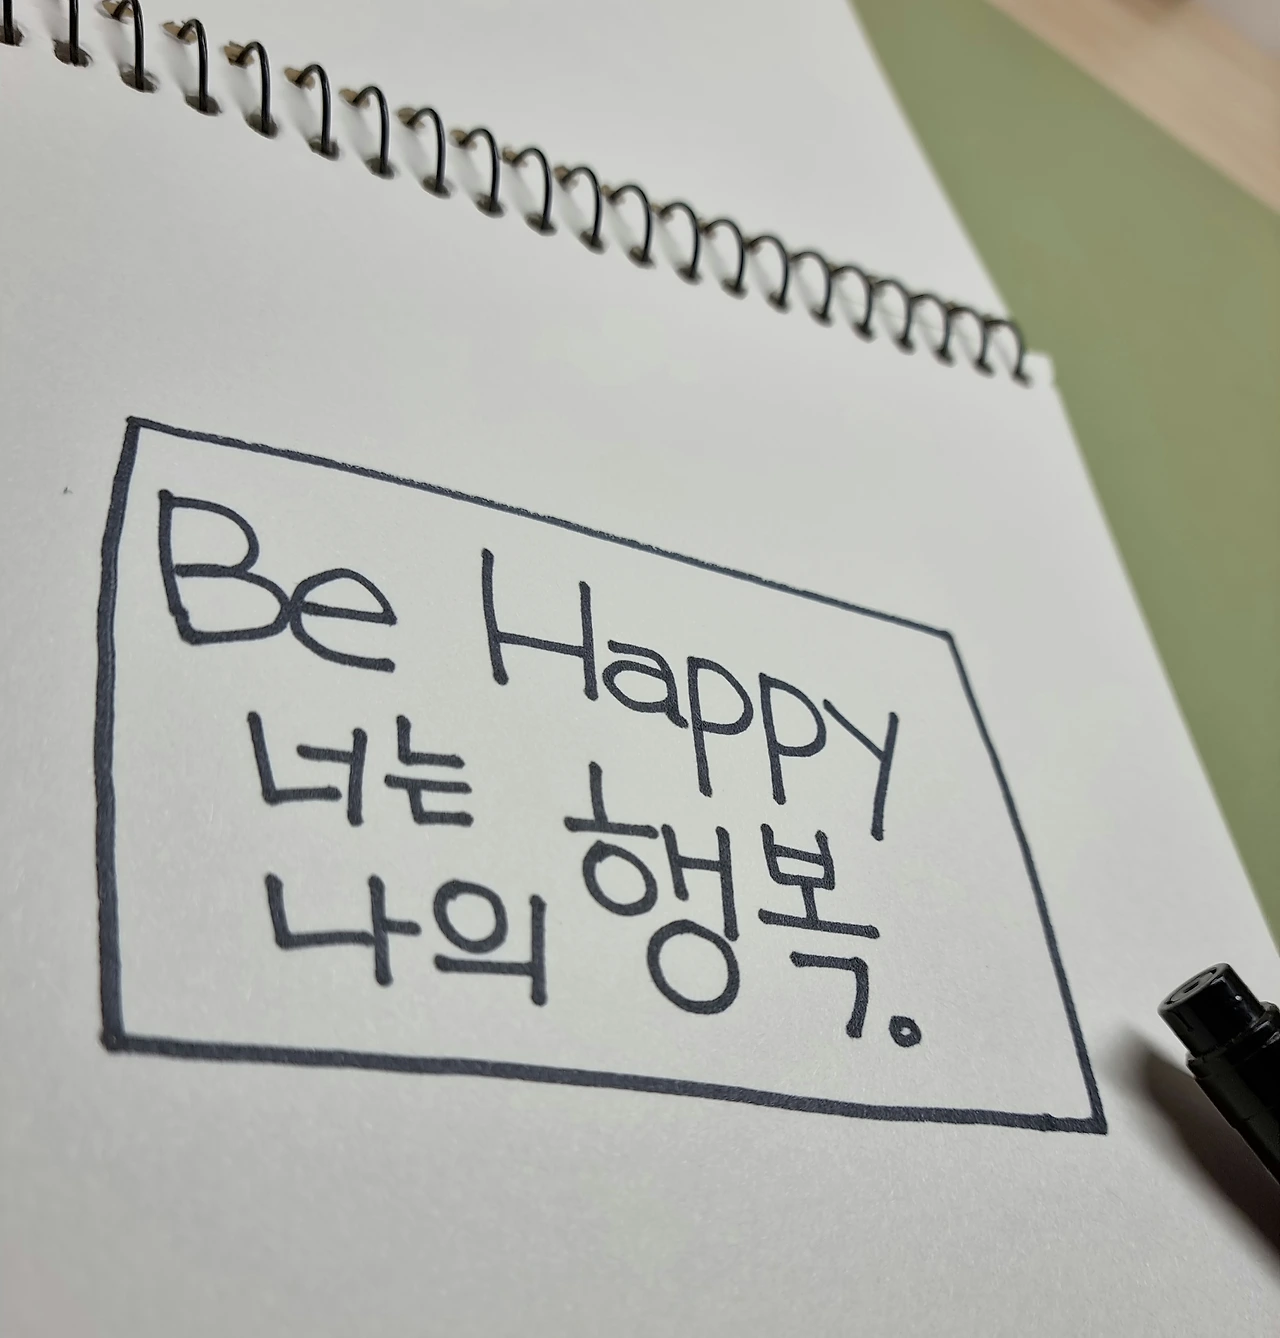 Be Happy
너는
나의 행복.